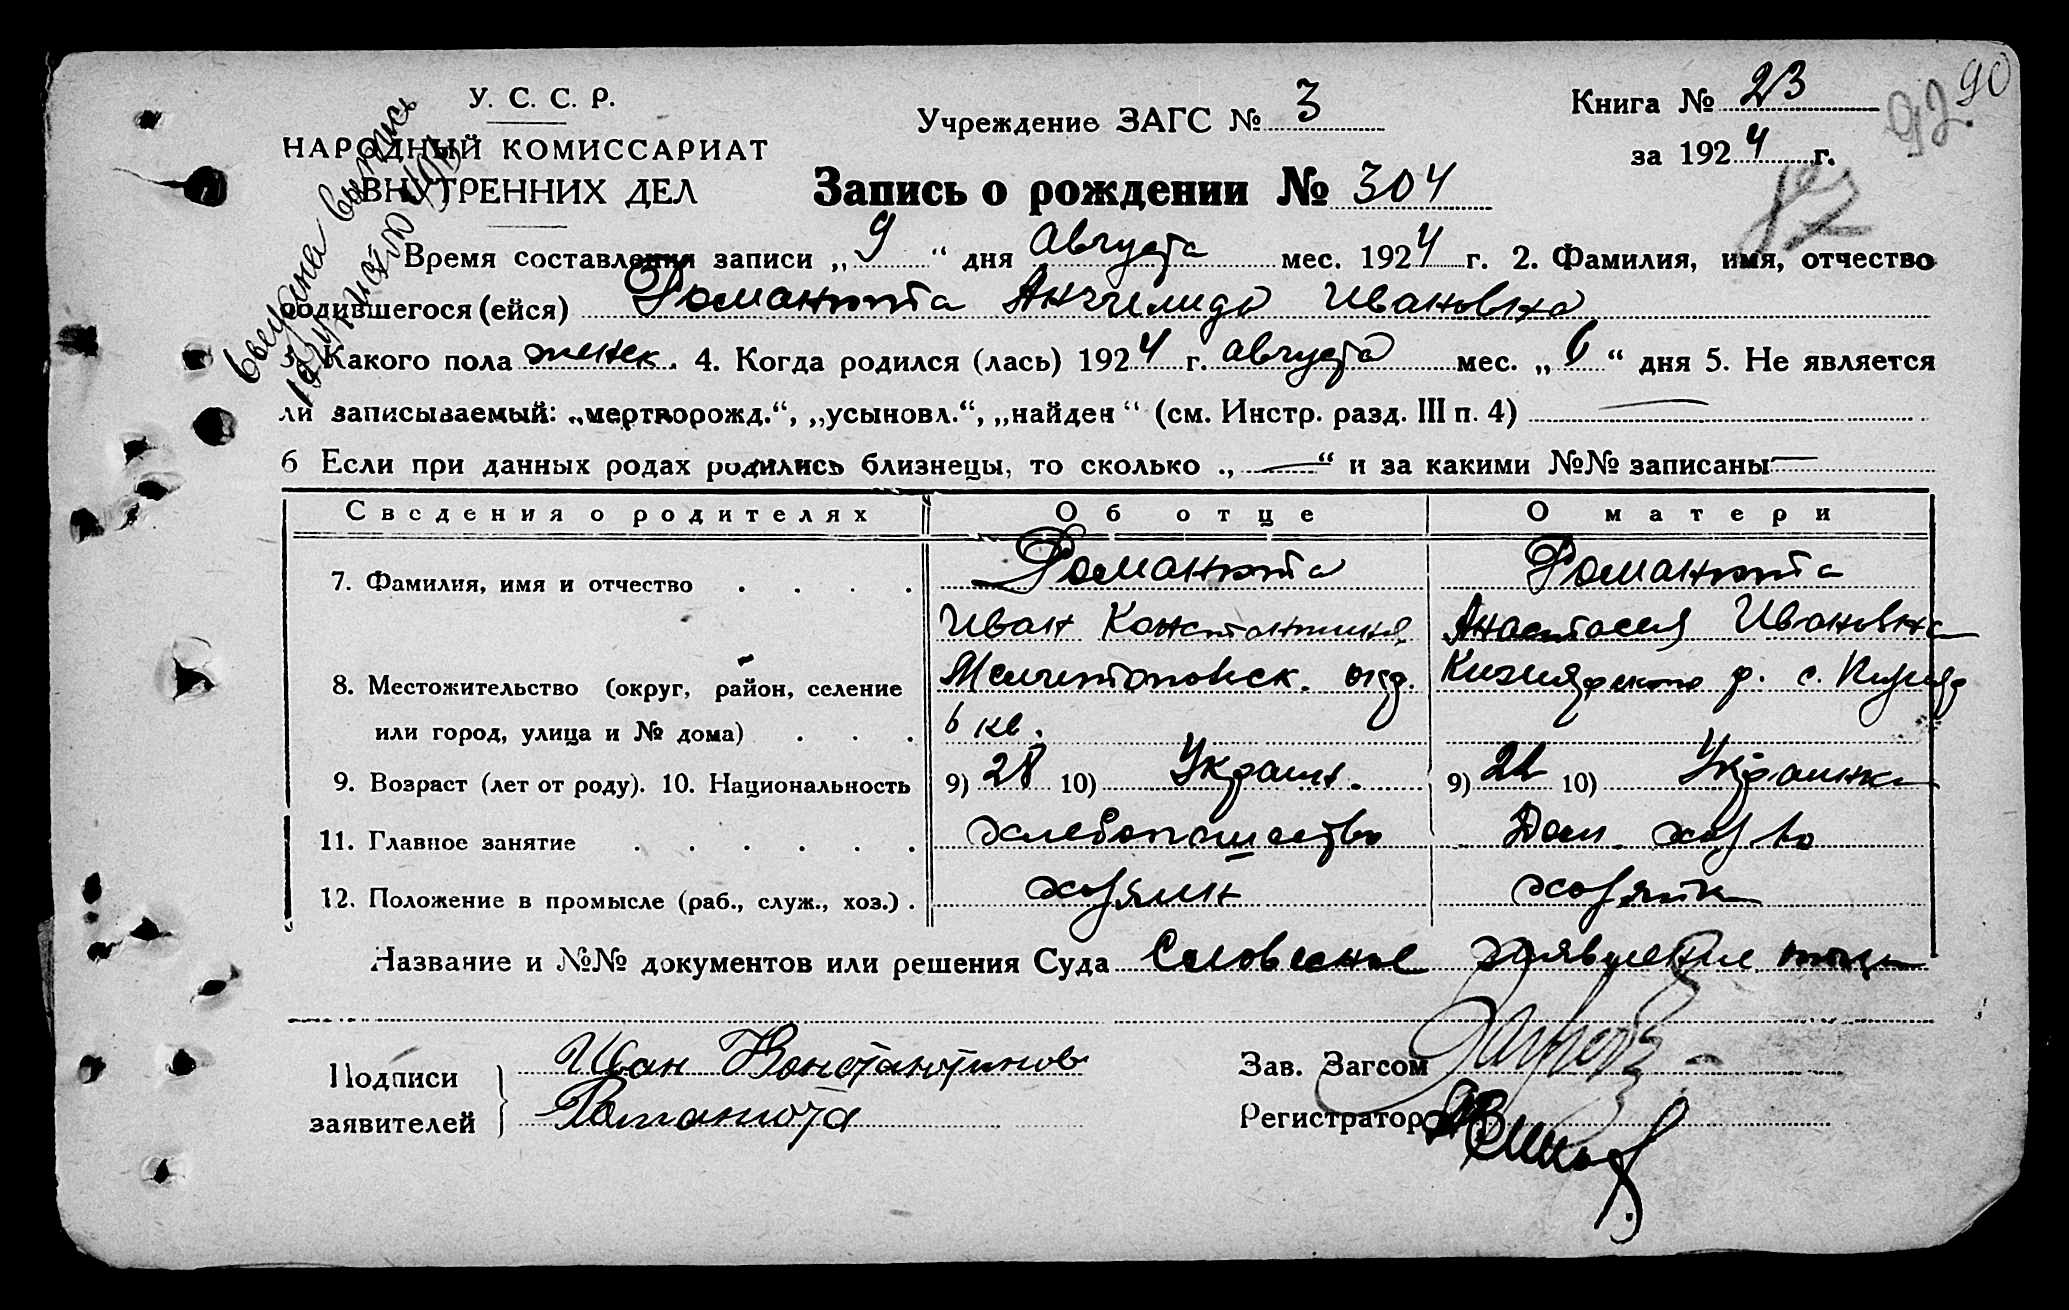 У. С. С. Р.
НАРОДНЫЙ КОМИССАРИАТ
ВНУТРЕННИХ ДЕЛ
Учреждение ЗАГС № 3
Книга № 23
90
92.
за 1924 г.
Запись о рождении № 304
Время составления записи „9“ дня Августа мес. 1924 г. 2. Фамилия, имя, отчество
родившегося (ейся) Романюта Ангелида Ивановна
3. Какого пола женск. 4. Когда родился (лась) 1924 г. августа мес. „6“ дня 5. Не является
ли записываемый: „мертворожд.“, „усыновл.“, „найден“ (см. Инстр. разд. III п. 4) —
6 Если при данных родах родились близнецы, то сколько „—“ и за какими №№ записаны —
Сведения о родителях Об отце О матери
7. Фамилия, имя и отчество . . . . Романюта Романюта
Иван Константинов Анастасия Ивановна
8. Местожительство (округ, район, селение Мелитопольск. окр. Кизиярского р. с. Кизияр
или город, улица и № дома) . . . 6 кв.
9. Возраст (лет от роду). 10. Национальность 9) 28 10) Украин. 9) 22 10) Украинка
11. Главное занятие . . . . . . хлебопашество Дом. хоз-во
12. Положение в промысле (раб., служ., хоз.) . хозяин хозяйка
Название и №№ документов или решения Суда Словесное заявление отца
Подписи заявителей } Иван Константинов
Романюта
Зав. Загсом
Регистратор